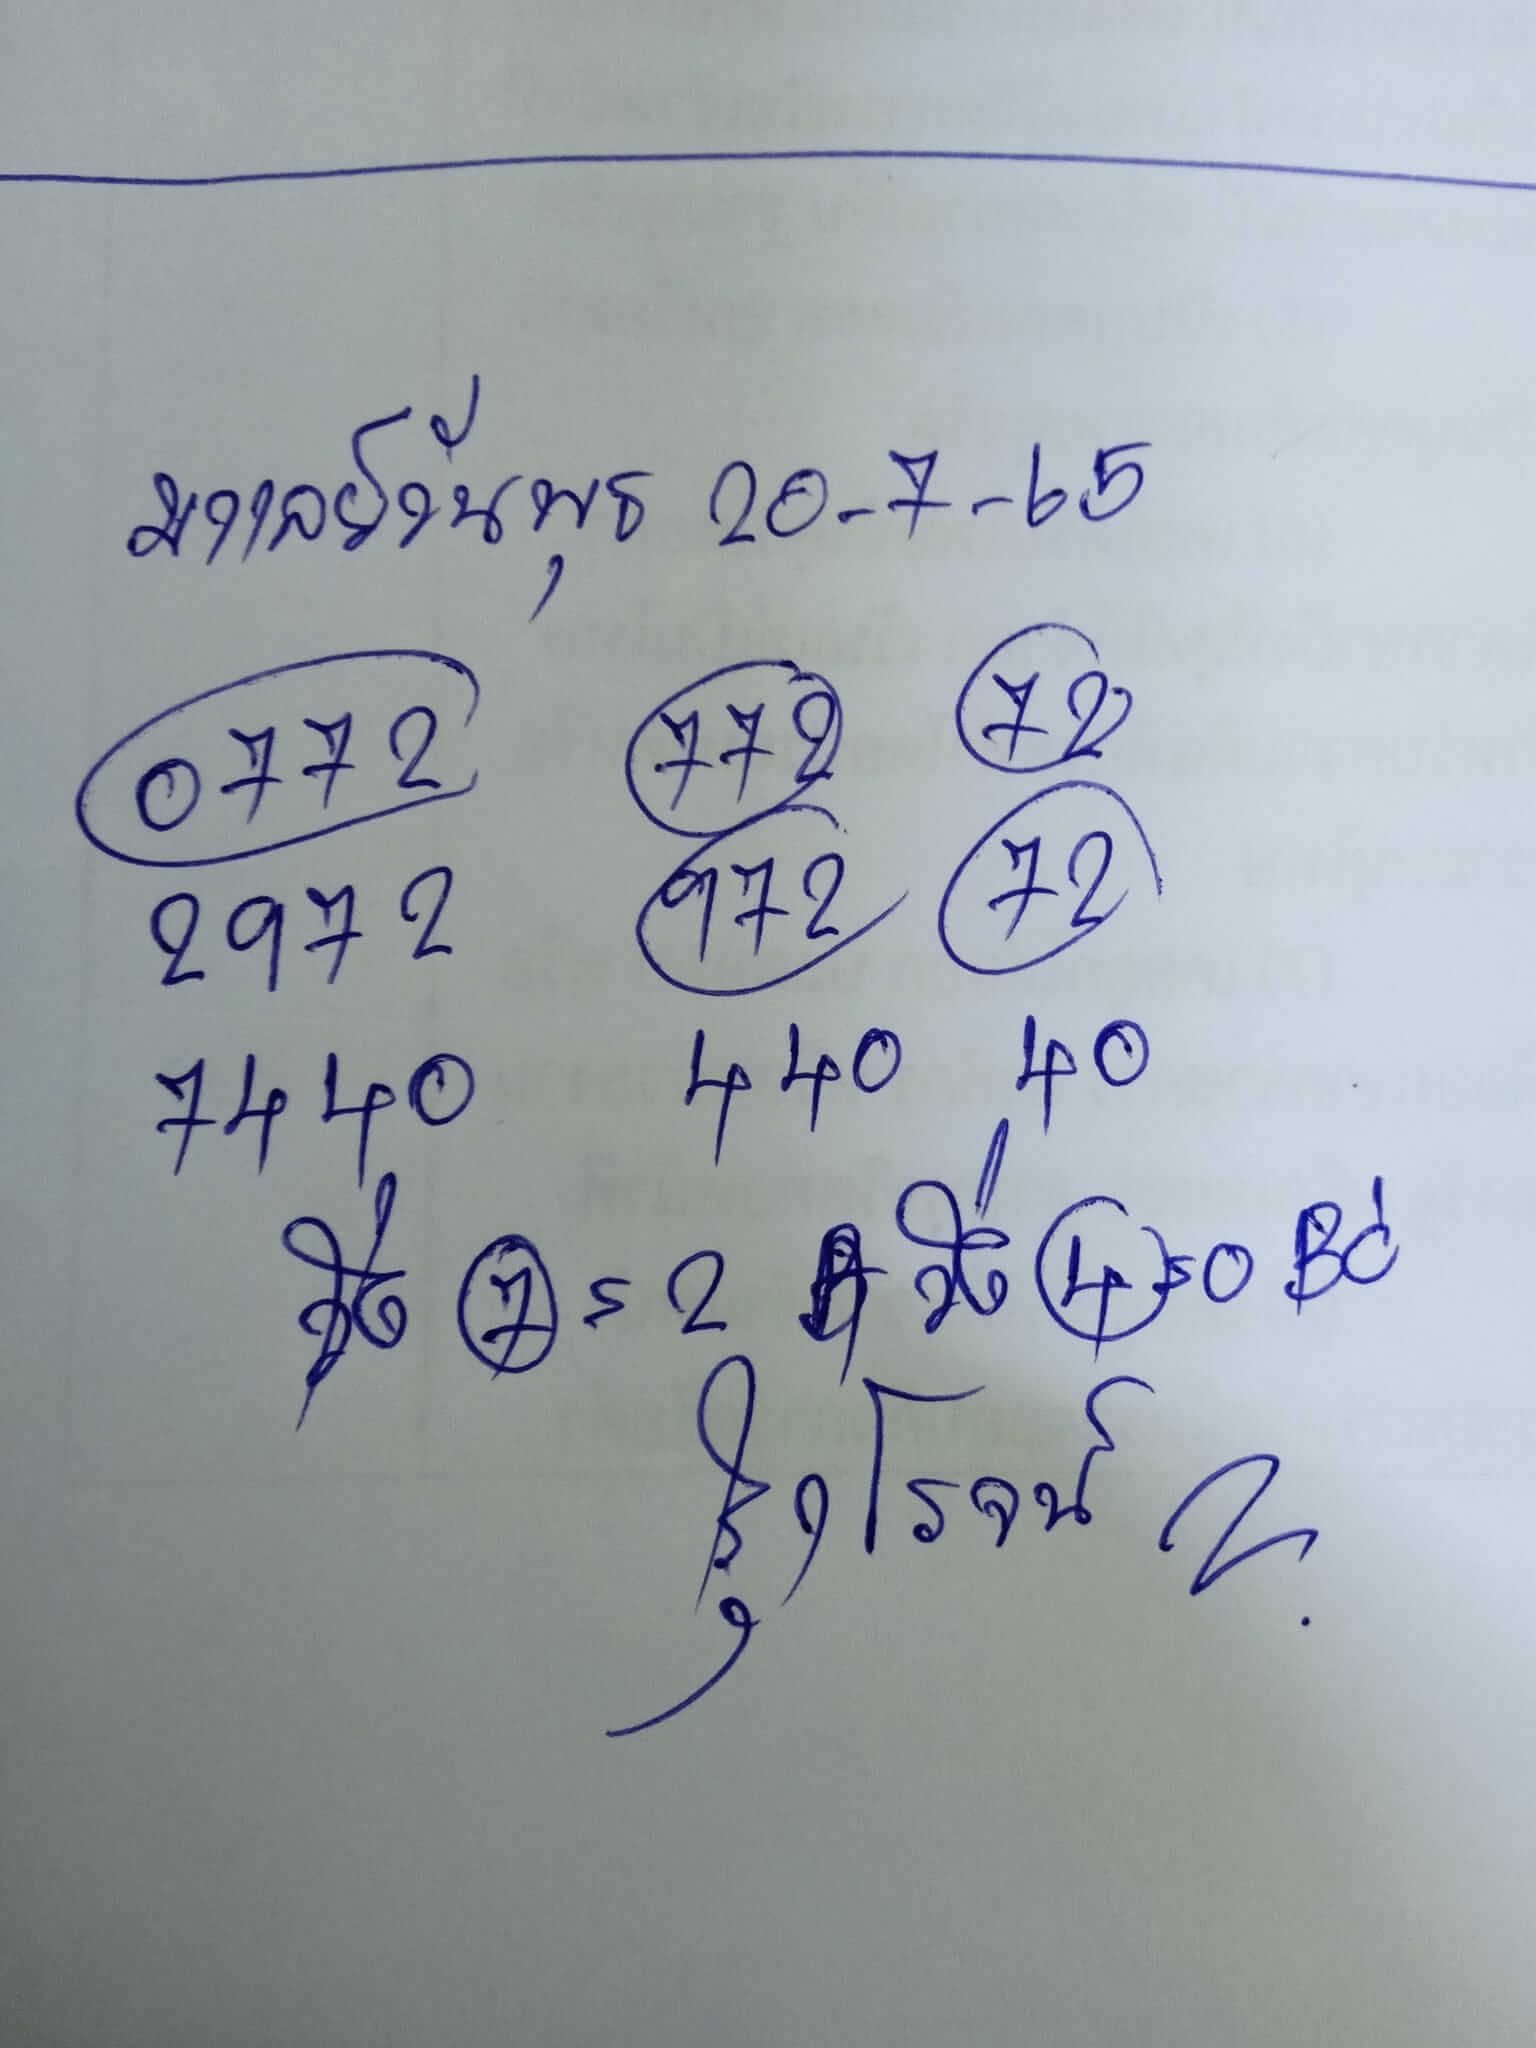 มาเลย์วันพุธ 20-7-65
0772 772 72
2972 972 72
7440 440 40
วิ่ง 7 = 2 วิ่ง 4 = 0
โรจน์